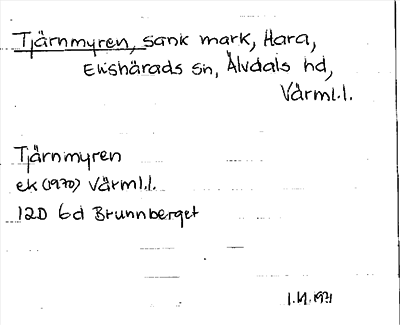 Tjärnmyren, sank mark, Hara,
Ekshärads sn, Älvdals hd,
Värml.l.
Tjärnmyren
ek (1970) Värml.l.
12D 6d Brunnberget
1971